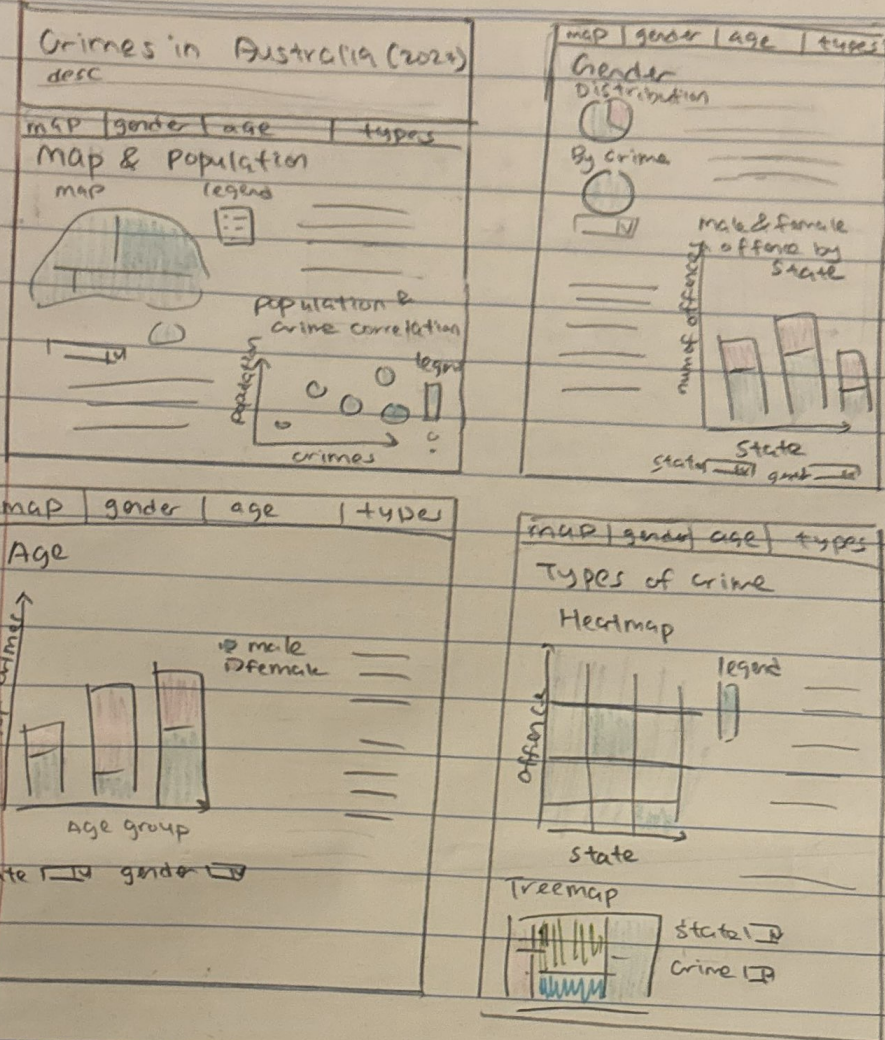 Crimes in Australia (2024)
desc
map | gender | age | types
Map & population
map legend
population &
crime correlation
legend
population
crimes
map | gender | age | types
Gender
Distribution
By crime
male & female
offence by
state
num of offence
State
state gender
map | gender | age | types
Age
crimes
male
female
Age group
gender
map | gender | age | types
Types of crime
Heatmap
legend
offence
state
Treemap
state
crime